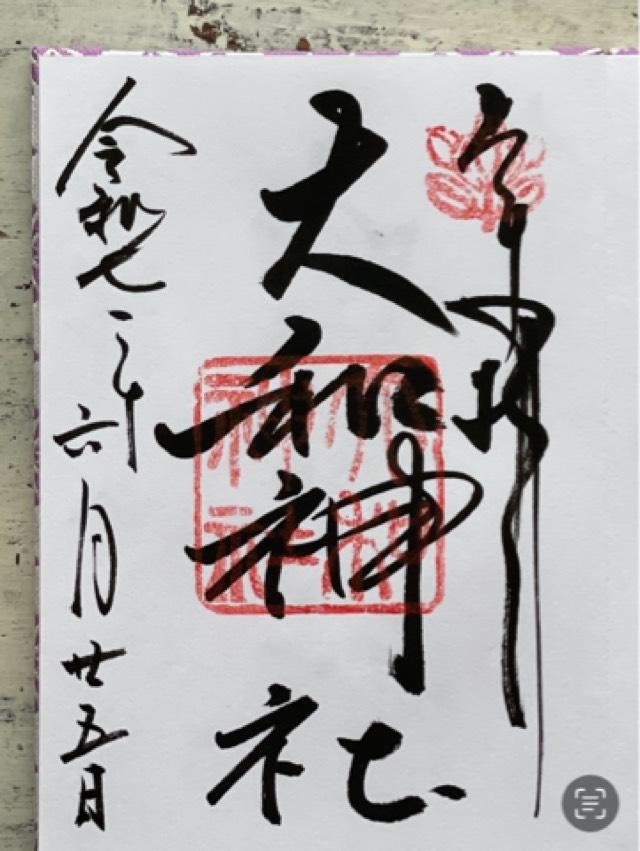 奉拝
大和神社
令和七年
六月廿五日